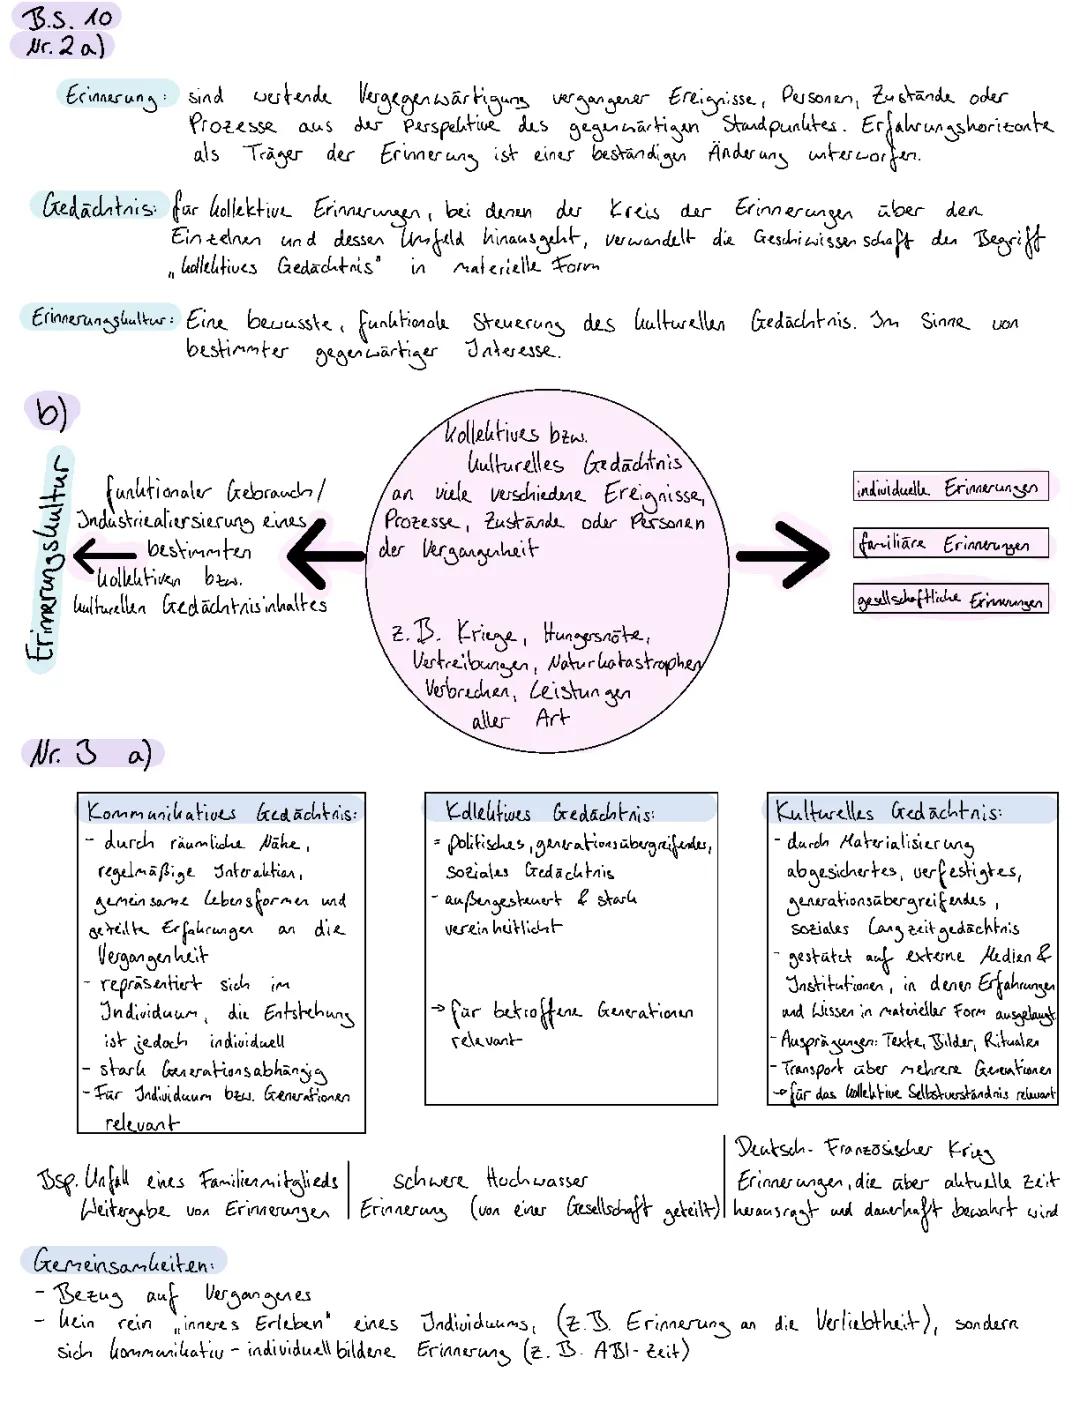 B.S. 10
Nr. 2 a)
Erinnerung: sind wertende Vergegenwärtigung vergangener Ereignisse, Personen, Zustände oder
Prozesse aus der Perspektive des gegenwärtigen Standpunktes. Erfahrungshorizonte
als Träger der Erinnerung ist einer beständigen Änderung unterworfen.
Gedächtnis: für kollektive Erinnerungen, bei denen der Kreis der Erinnerungen über den
Einzelnen und dessen Umfeld hinausgeht, verwandelt die Geschiwissenschaft den Begriff
„kollektives Gedächtnis" in materielle Form
Erinnerungskultur: Eine bewusste, funktionale Steuerung des kulturellen Gedächtnis. Im Sinne von
bestimmter gegenwärtiger Interesse.
b)
Erinnerungskultur
funktionaler Gebrauch/
Industriealiersierung eines
bestimmten
kollektiven bzw.
kulturellen Gedächtnisinhaltes
kollektives bzw.
kulturelles Gedächtnis
an viele verschiedene Ereignisse,
Prozesse, Zustände oder Personen
der Vergangenheit
z.B. Kriege, Hungersnöte,
Vertreibungen, Naturkatastrophen
Verbrechen, Leistungen
aller Art
individuelle Erinnerungen
familiäre Erinnerungen
gesellschaftliche Erinnerungen
Nr. 3 a)
Kommunikatives Gedächtnis:
- durch räumliche Nähe,
regelmäßige Interaktion,
gemeinsame Lebensformen und
geteilte Erfahrungen an die
Vergangenheit
- repräsentiert sich im
Individuum, die Entstehung
ist jedoch individuell
- stark Generationsabhängig
- Für Individuum bzw. Generationen
relevant
Kollektives Gedächtnis:
= politisches, generationsübergreifendes,
soziales Gedächtnis
- außengesteuert & stark
vereinheitlicht
→ für betroffene Generationen
relevant
Kulturelles Gedächtnis:
- durch Materialisierung
abgesichertes, verfestigtes,
generationsübergreifendes,
soziales Langzeitgedächtnis
- gestützt auf externe Medien &
Institutionen, in denen Erfahrungen
und Wissen in materieller Form ausgelangt
- Ausprägungen: Texte, Bilder, Ritualen
- Transport über mehrere Generationen
→ für das kollektive Selbstverständnis relevant
Bsp. Unfall eines Familienmitglieds
Weitergabe von Erinnerungen
schwere Hochwasser
Erinnerung (von einer Gesellschaft geteilt)
Deutsch-Französischer Krieg
Erinnerungen, die über aktuelle Zeit
herausragt und dauerhaft bewahrt wird
Gemeinsamkeiten:
- Bezug auf Vergangenes
- kein rein „inneres Erleben" eines Individuums, (z.B. Erinnerung an die Verliebtheit), sondern
sich kommunikativ-individuell bildene Erinnerung (z.B. ABI-Zeit)